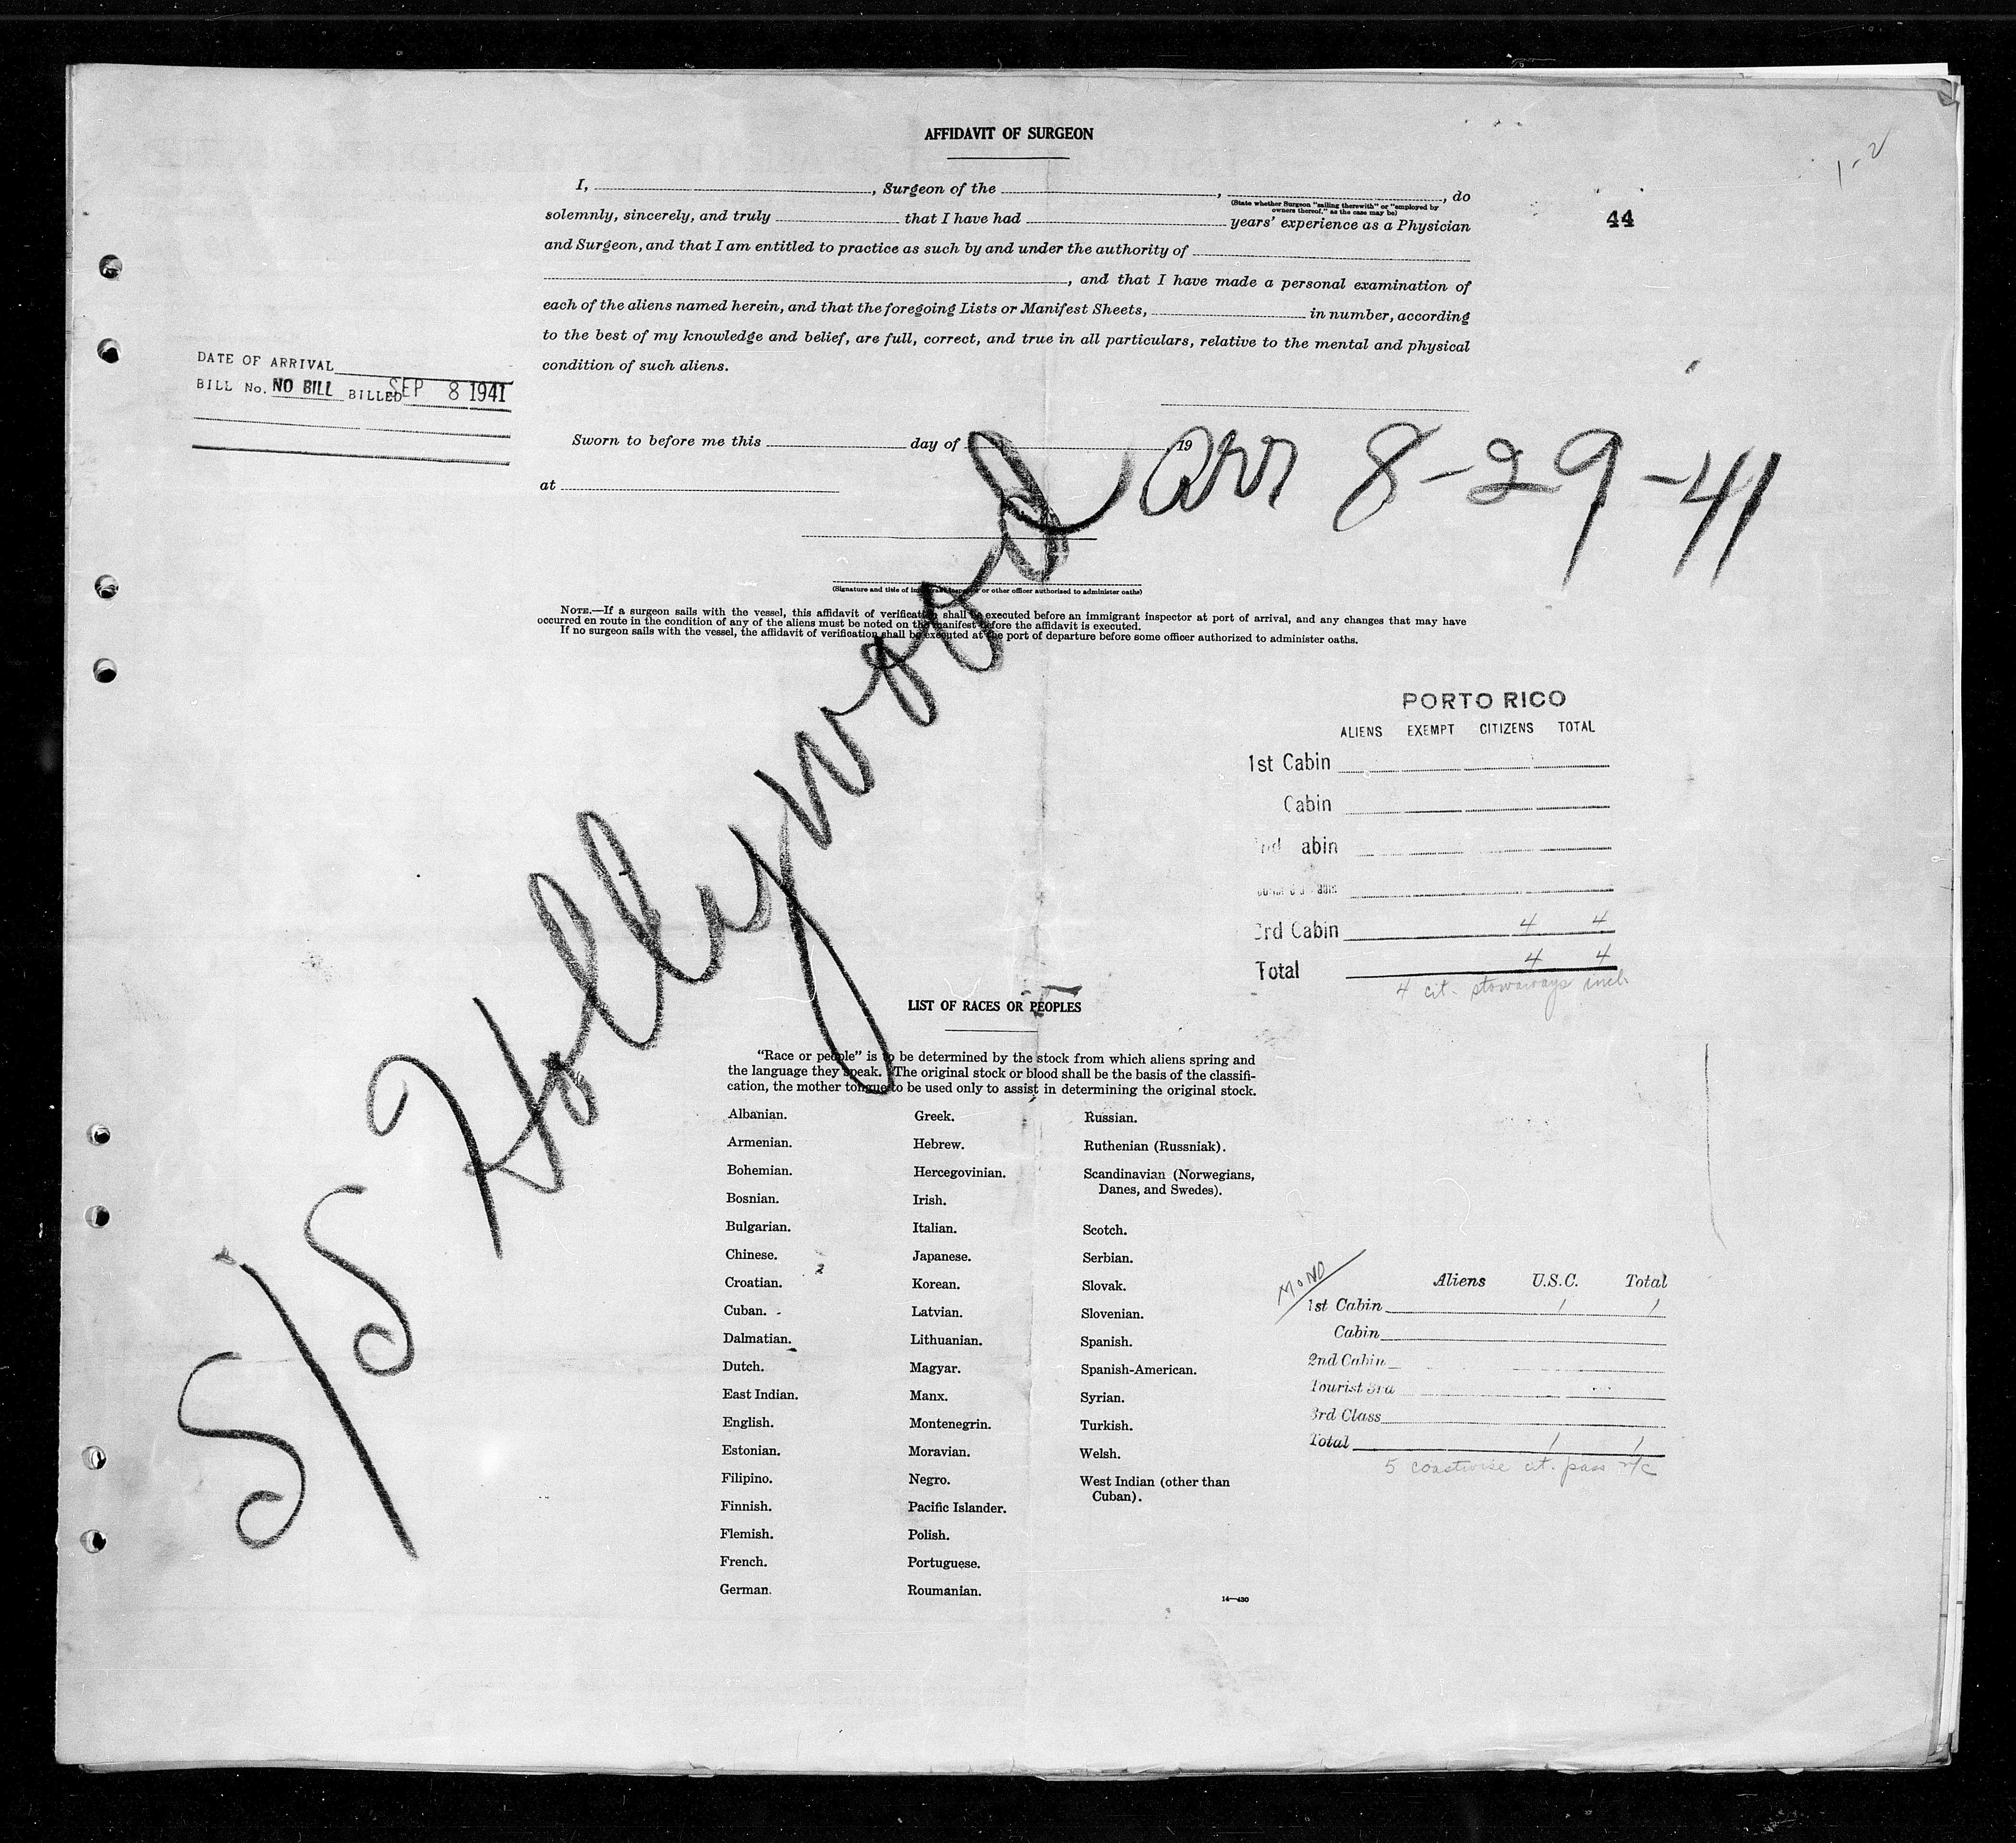 AFFIDAVIT OF SURGEON
1-2
I, , Surgeon of the , , do
(State whether Surgeon "sailing therewith" or "employed by
owners thereof," as the case may be)
44
solemnly, sincerely, and truly that I have had years' experience as a Physician
and Surgeon, and that I am entitled to practice as such by and under the authority of
, and that I have made a personal examination of
each of the aliens named herein, and that the foregoing Lists or Manifest Sheets, in number, according
to the best of my knowledge and belief, are full, correct, and true in all particulars, relative to the mental and physical
condition of such aliens.
DATE OF ARRIVAL
BILL No. NO BILL BILLED SEP 8 1941
Sworn to before me this day of , 19
at
S/S Hollywood arr 8-29-41
(Signature and title of immigrant inspector or other officer authorized to administer oaths)
NOTE.—If a surgeon sails with the vessel, this affidavit of verification shall be executed before an immigrant inspector at port of arrival, and any changes that may have
occurred en route in the condition of any of the aliens must be noted on the manifest before the affidavit is executed.
If no surgeon sails with the vessel, the affidavit of verification shall be executed at the port of departure before some officer authorized to administer oaths.
PORTO RICO
ALIENS EXEMPT CITIZENS TOTAL
1st Cabin
Cabin
nd abin
3rd Cabin 4 4
Total 4 4
4 cit. stowaways incl.
LIST OF RACES OR PEOPLES
"Race or people" is to be determined by the stock from which aliens spring and
the language they speak. The original stock or blood shall be the basis of the classifi-
cation, the mother tongue to be used only to assist in determining the original stock.
Albanian.
Armenian.
Bohemian.
Bosnian.
Bulgarian.
Chinese.
Croatian.
Cuban.
Dalmatian.
Dutch.
East Indian.
English.
Estonian.
Filipino.
Finnish.
Flemish.
French.
German.
Greek.
Hebrew.
Hercegovinian.
Irish.
Italian.
Japanese.
Korean.
Latvian.
Lithuanian.
Magyar.
Manx.
Montenegrin.
Moravian.
Negro.
Pacific Islander.
Polish.
Portuguese.
Roumanian.
Russian.
Ruthenian (Russniak).
Scandinavian (Norwegians,
Danes, and Swedes).
Scotch.
Serbian.
Slovak.
Slovenian.
Spanish.
Spanish-American.
Syrian.
Turkish.
Welsh.
West Indian (other than
Cuban).
14—430
MOND
Aliens U.S.C. Total
1st Cabin 1 1
Cabin
2nd Cabin
Tourist 3rd
3rd Class
Total 1 1
5 coastwise cit. pass n/c